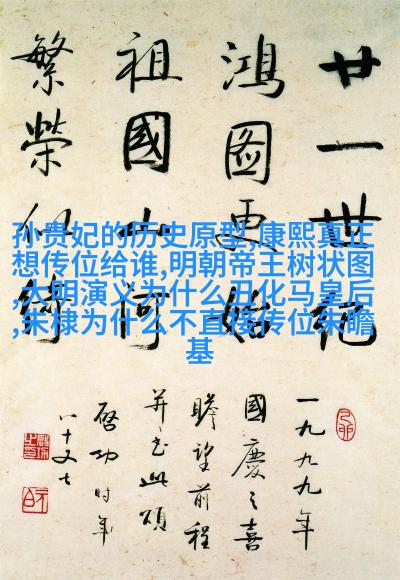 廿一世紀
鴻圖更始
祖國山河
繁榮似綺
孙贵妃的历史原型,康熙真正
想传位给谁,明朝帝王树状图
,大明演义为什么丑化马皇后
,朱棣为什么不直接传位朱瞻
基
一九九九年
國慶之喜
瞻望前程
并书此頌
啓功时年
八十又七